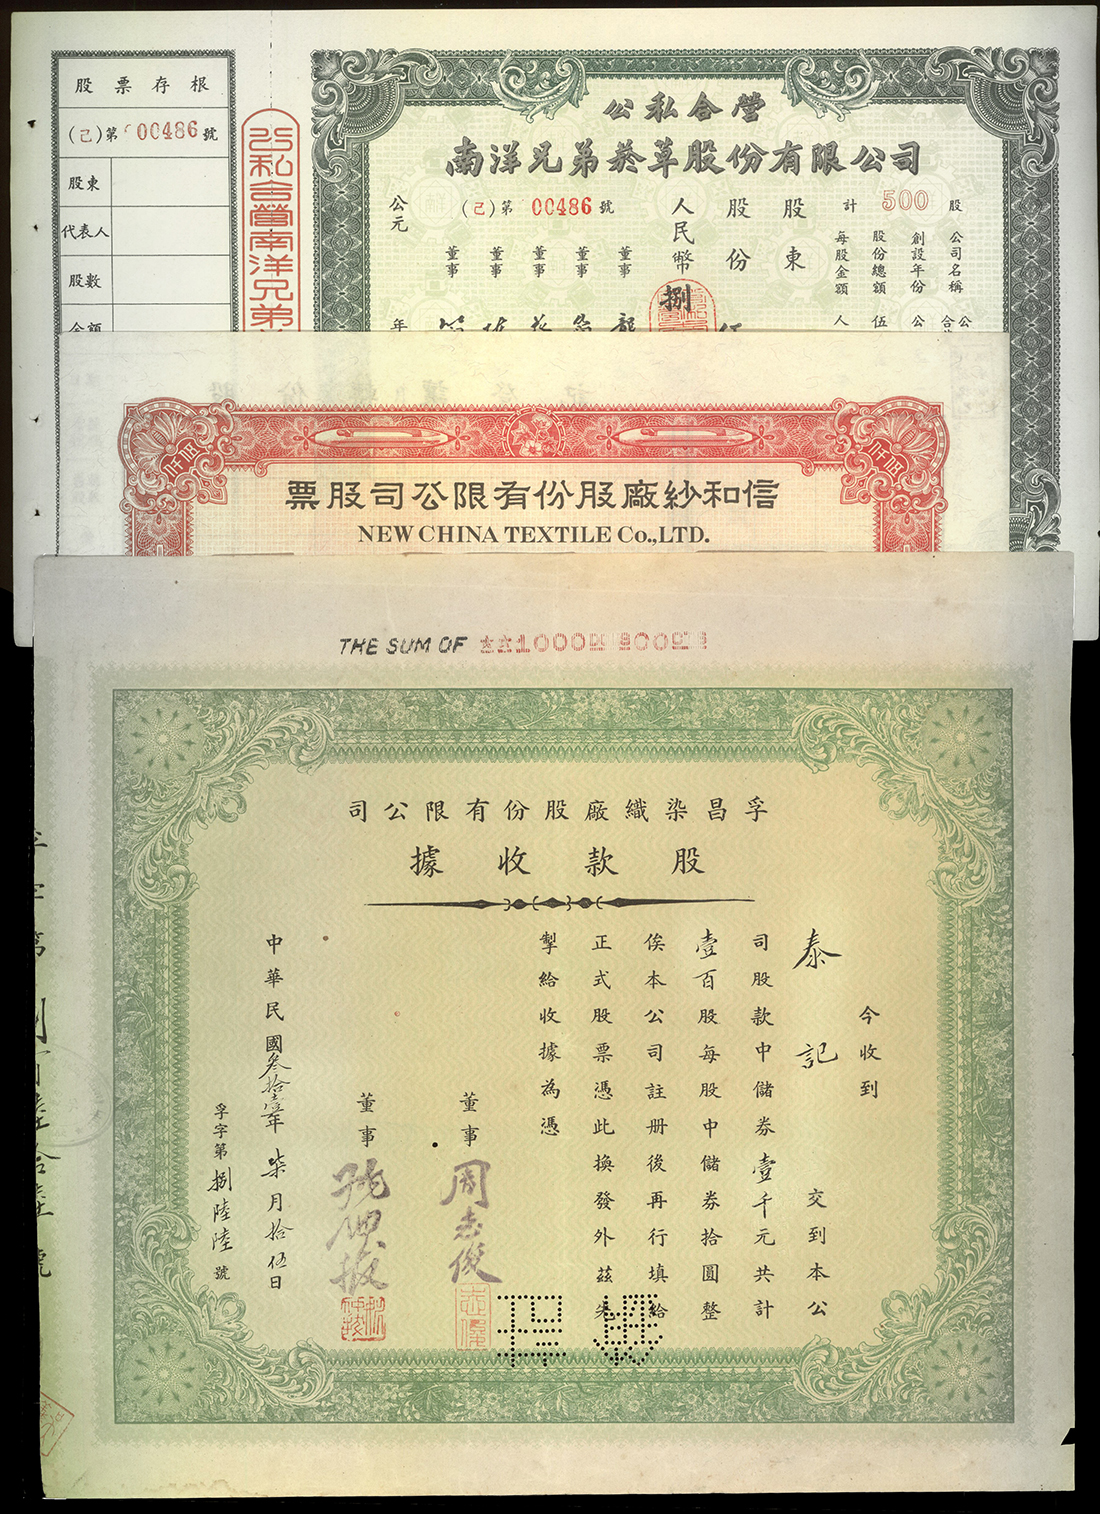 股票存根
(己)第00486號
股東
代表人
股數
金額
公私合營南洋兄弟
公私合營
南洋兄弟菸草股份有限公司
計500股
(己)第00486號
公司名稱
創設年份
股份總額
每股金額
股東
股份
人民幣捌
董事
董事
董事
董事
董事
公元
年
仟佰
仟佰
信和紗廠股份有限公司股票
NEW CHINA TEXTILE Co.,LTD.
THE SUM OF
孚昌染織廠股份有限公司
股款收據
今收到
泰記 交到本公
司股款中儲券壹千元共計
壹百股每股中儲券拾圓整
俟本公司註册後再行填給
正式股票憑此換發外茲先
掣給收據為憑
董事 周志俊
董事
中華民國叁拾壹年柒月拾伍日
孚字第捌陸陸號